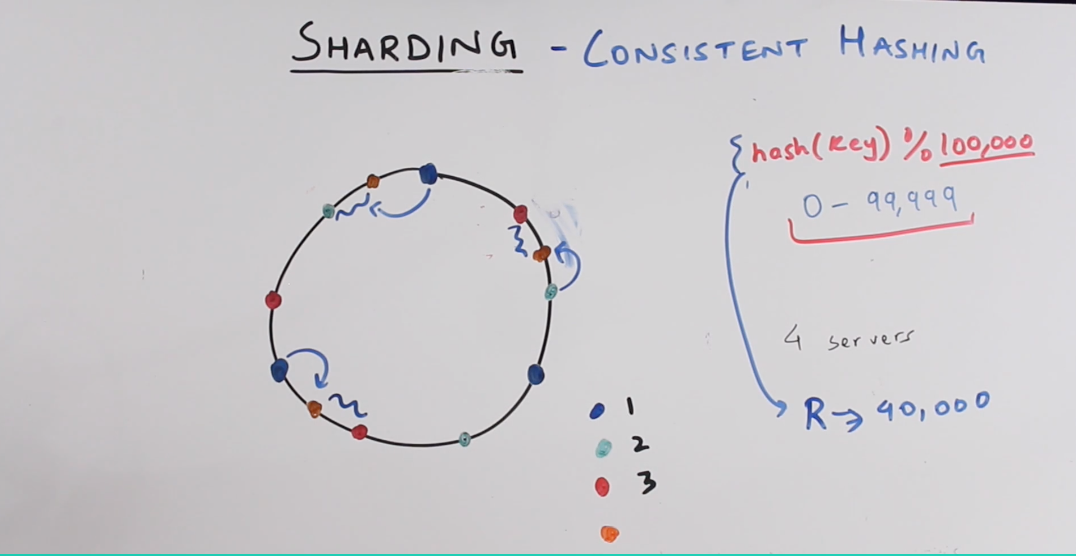 SHARDING - CONSISTENT HASHING
hash(key) % 100,000
0 - 99,999
4 servers
R → 40,000
1
2
3